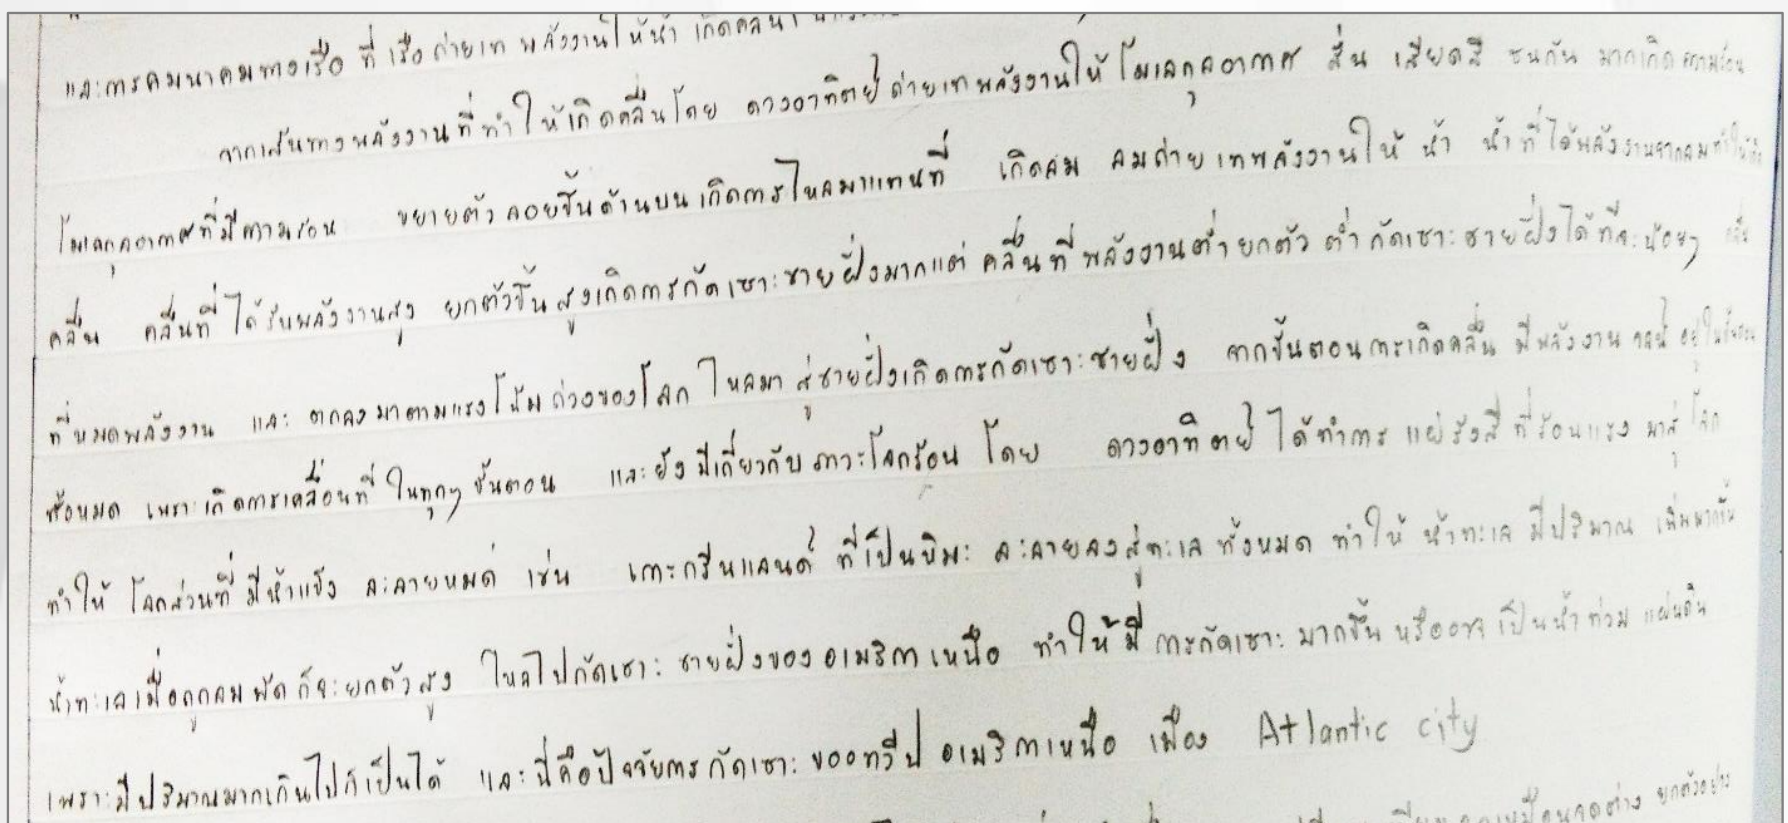 และการคมนาคมทางเรือ ที่ เรือ ถ่ายเท พลังงานให้น้ำ เกิดคลื่น
จากเส้นทางพลังงานที่ทำให้เกิดคลื่นโดย ดวงอาทิตย์ถ่ายเทพลังงานให้โมเลกุลอากาศ สั่น เสียดสี ชนกัน มากเกิด ความร้อน
โมเลกุลอากาศที่มีความร้อน ขยายตัว ลอยขึ้นด้านบนเกิดการไหลมาแทนที่ เกิดลม ลมถ่ายเทพลังงานให้ น้ำ น้ำที่ได้พลังงานจากลมทำให้เกิด
คลื่น คลื่นที่ได้รับพลังงานสูง ยกตัวขึ้นสูงเกิดการกัดเซาะชายฝั่งมากแต่ คลื่นที่พลังงานต่ำยกตัว ต่ำ กัดเซาะชายฝั่งได้ทีละน้อยๆ คลื่น
ที่หมดพลังงาน และ ตกลงมาตามแรงโน้มถ่วงของโลก ไหลมา สู่ชายฝั่งเกิดการกัดเซาะชายฝั่ง จากขั้นตอนการเกิดคลื่น มีพลังงานจลน์ อยู่ในขั้นตอน
ทั้งหมด เพราะเกิดการเคลื่อนที่ ในทุกๆ ขั้นตอน และยังมีเกี่ยวกับภาวะโลกร้อน โดย ดวงอาทิตย์ ได้ทำการ แผ่รังสี ที่ร้อนแรง มาสู่ โลก
ทำให้ โลกส่วนที่มีน้ำแข็ง ละลายหมด เช่น เกาะกรีนแลนด์ ที่เป็นหิมะ ละลายลงสู่ทะเล ทั้งหมด ทำให้ น้ำทะเล มีปริมาณ เพิ่มมากขึ้น
น้ำทะเลเมื่อถูกลมพัดก็จะยกตัวสูง ไหลไปกัดเซาะ ชายฝั่งของอเมริกาเหนือ ทำให้มี การกัดเซาะ มากขึ้น หรืออาจ เป็นน้ำท่วม แผ่นดิน
เพราะมีปริมาณมากเกินไปก็เป็นได้ และนี่คือปัจจัยการกัดเซาะ ของทวีป อเมริกาเหนือ เมือง Atlantic city
ยกตัวอย่าง